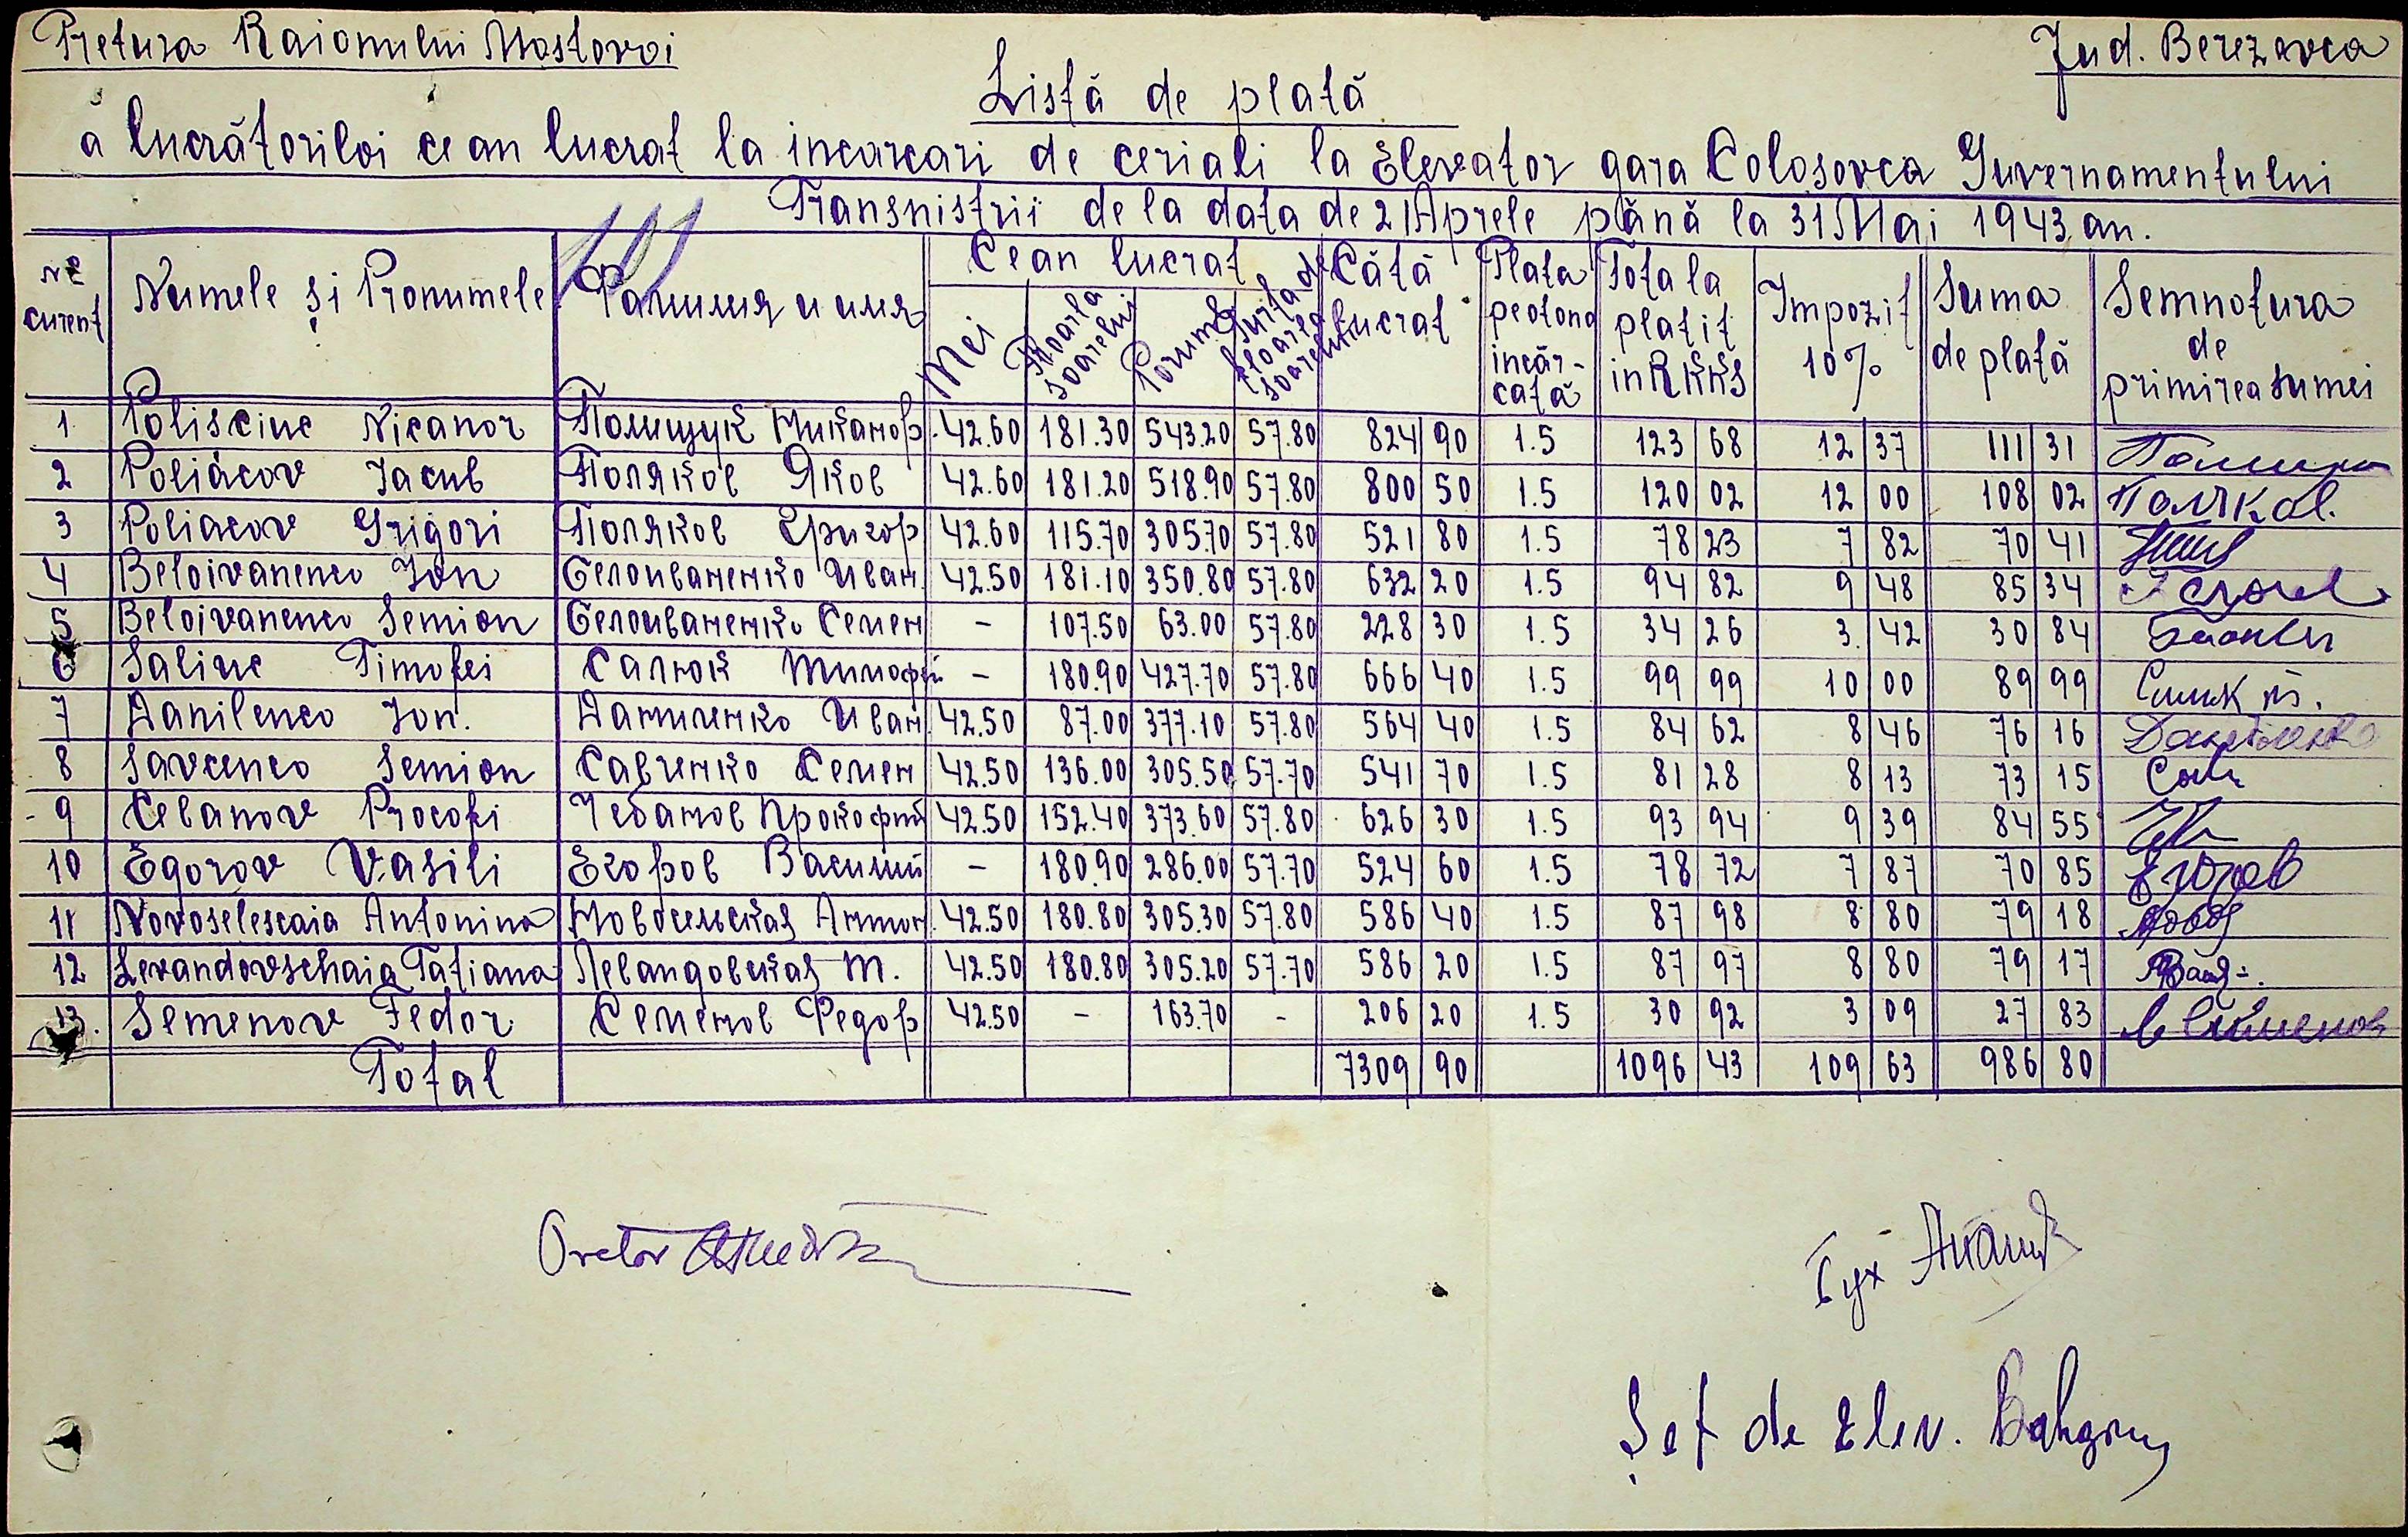 Pretura Raionului Mostovoi
Jud. Berezovca
Listă de plată
a lucrătoriloi ce an lucrat la incarcari de ceriali la Elevator gara Colosovca Guvernamentului
Transnistrii de la data de 21 Aprele până la 31 Mai 1943 an.
№ curent Numele și Pronumele Фамилия и имя Ce an lucrat Câtă lucrat Plata pe tona incăr-cată Tota la platit in RKKS Impozit 10% Suma de plată Semnotura de primirea sumei
Mei Floarla soarelui Porumb floarea soarelui
1 Polisciuc Nicanor Полищук Никанор 42.60 181.30 543.20 57.80 824 90 1.5 123 68 12 37 111 31
2 Poliacov Jacub Поляков Яков 42.60 181.20 518.90 57.80 800 50 1.5 120 02 12 00 108 02 Поляков.
3 Poliacov Grigori Поляков Григор 42.60 115.70 305.70 57.80 521 80 1.5 78 23 7 82 70 41
4 Beloivanenco Jon Белоиваненко Иван. 42.50 181.10 350.80 57.80 632 20 1.5 94 82 9 48 85 34
5 Beloivanenco Semion Белоиваненко Семен - 107.50 63.00 57.80 228 30 1.5 34 26 3. 42 30 84
6 Saliuc Timofei Салюк Тимофей - 180.90 427.70 57.80 666 40 1.5 99 99 10 00 89 99
7 Danilenco Jon. Даниленко Иван 42.50 87.00 377.10 57.80 564 40 1.5 84 62 8 46 76 16 Даниленко
8 Savcenco Semion Савченко Семен 42.50 136.00 305.50 57.70 541 70 1.5 81 28 8 13 73 15
9 Cebanov Procofi Чебанов Прокофий 42.50 152.40 373.60 57.80 626 30 1.5 93 94 9 39 84 55
10 Egorov Vasili Егоров Василий - 180.90 286.00 57.70 524 60 1.5 78 72 7 87 70 85 Егоров
11 Novoselescaia Antonina Новосельская Антон. 42.50 180.80 305.30 57.80 586 40 1.5 87 98 8 80 79 18
12 Levandovschaia Tatiana Левандовская Т. 42.50 180.80 305.20 57.70 586 20 1.5 87 97 8 80 79 17
13. Semenov Fedor Семенов Федор 42.50 - 163.70 - 206 20 1.5 30 92 3 09 27 83
Total 7309 90 1096 43 109 63 986 80
Pretor
Бух
Șef de Elev.